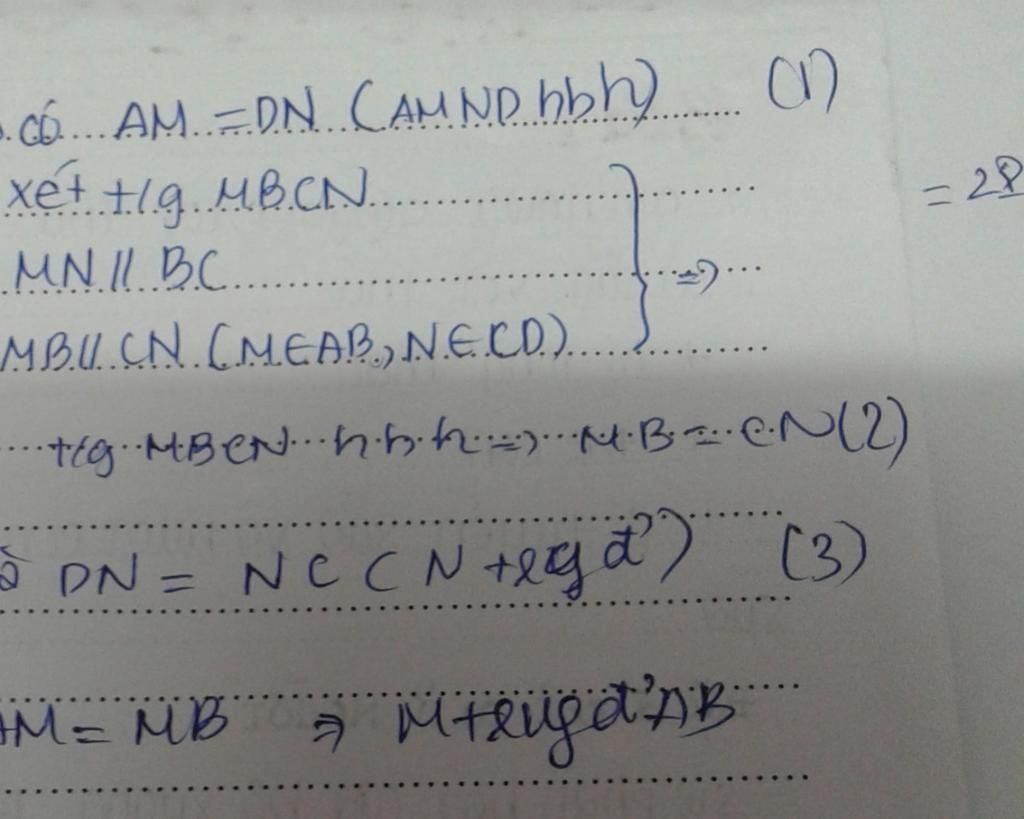 có AM = DN (AMND hbh) (1)
xét t/g MBCN
= 28
MN // BC
=>
MB // CN (M∈AB, N∈CD)
t/g MBCN hbh => MB = CN (2)
DN = NC (N trg đ') (3)
AM = MB => M trug đ' AB